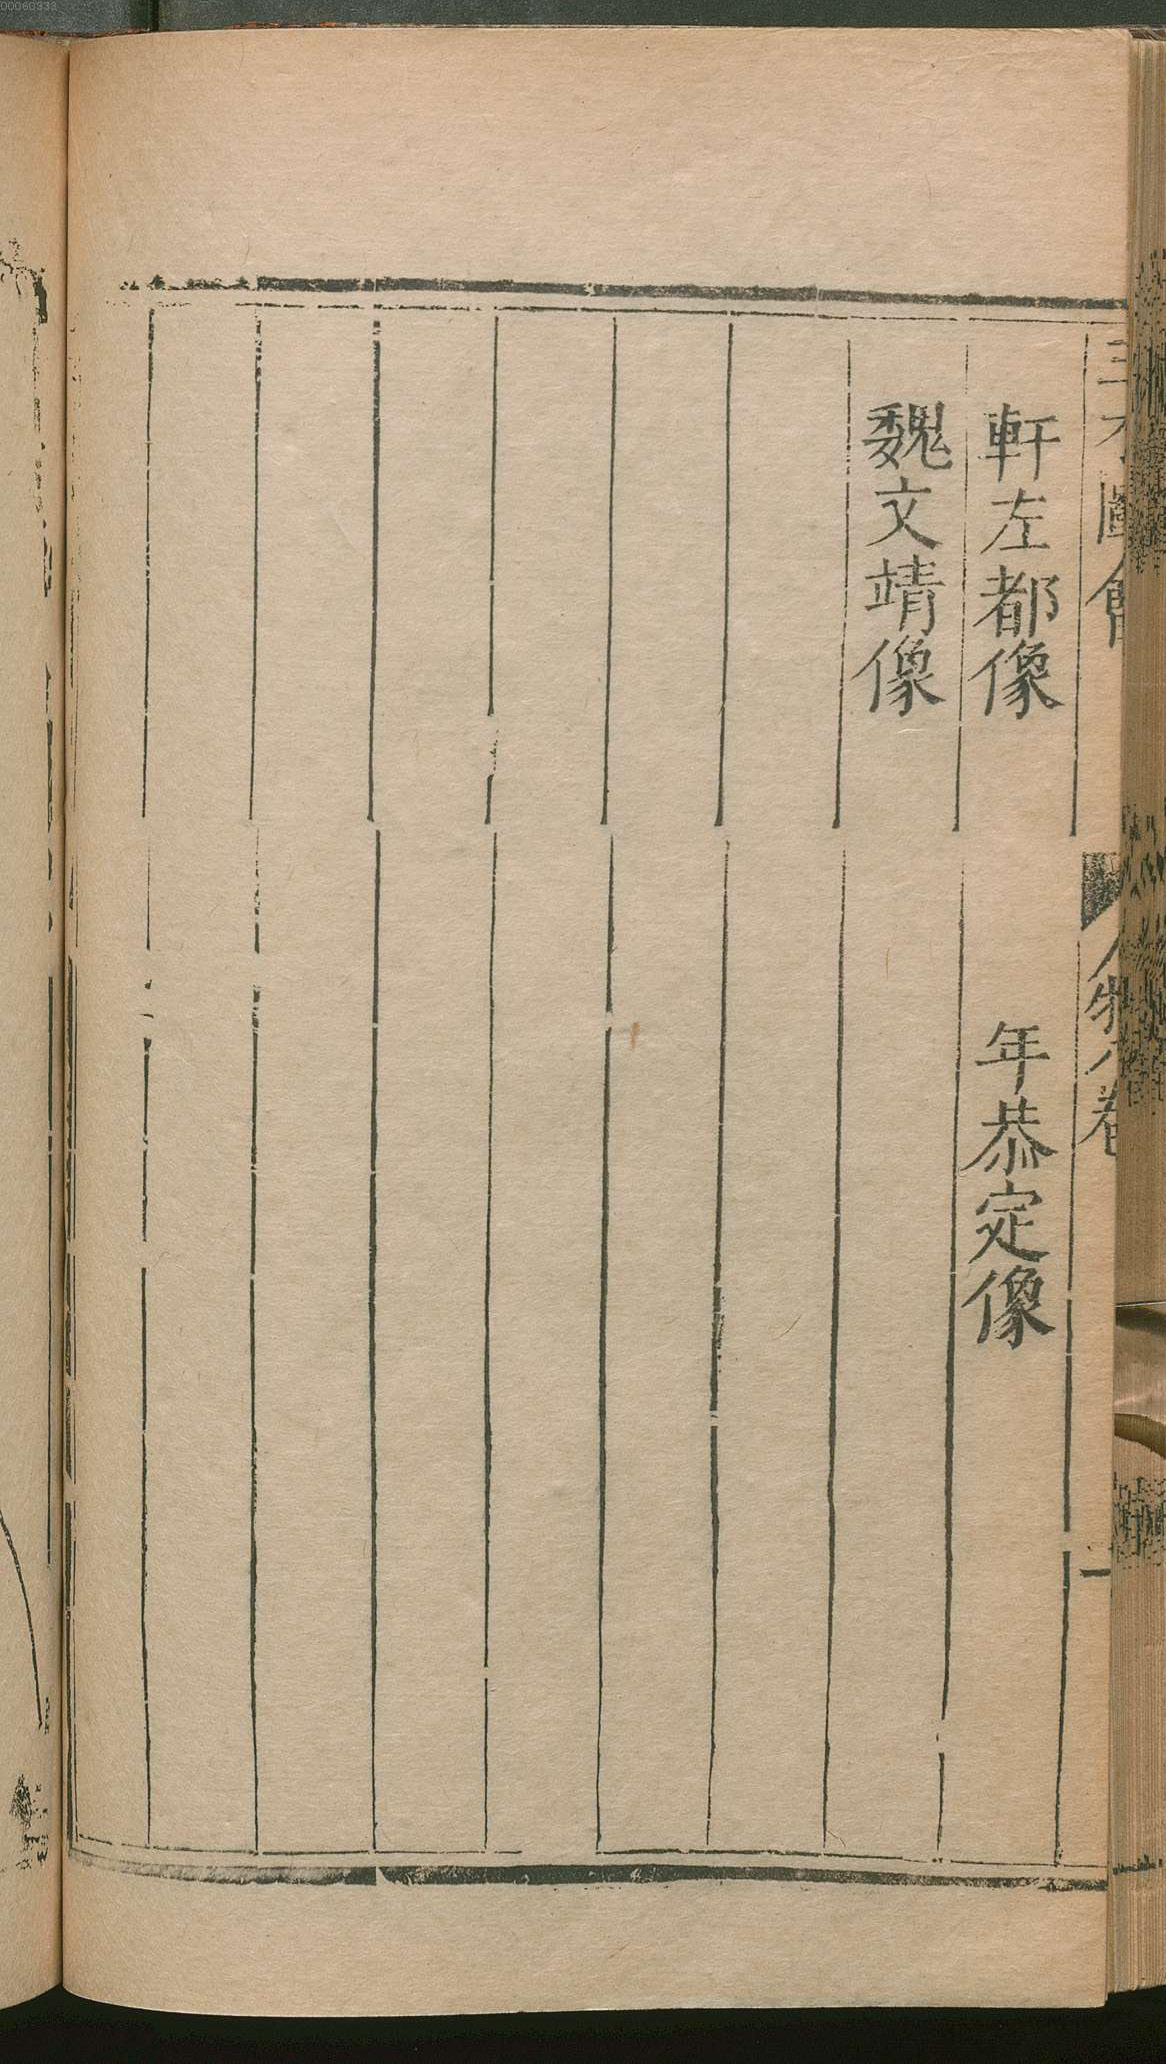 三才圖會
人物八卷
一
軒左都像
年恭定像
魏文靖像
00060333